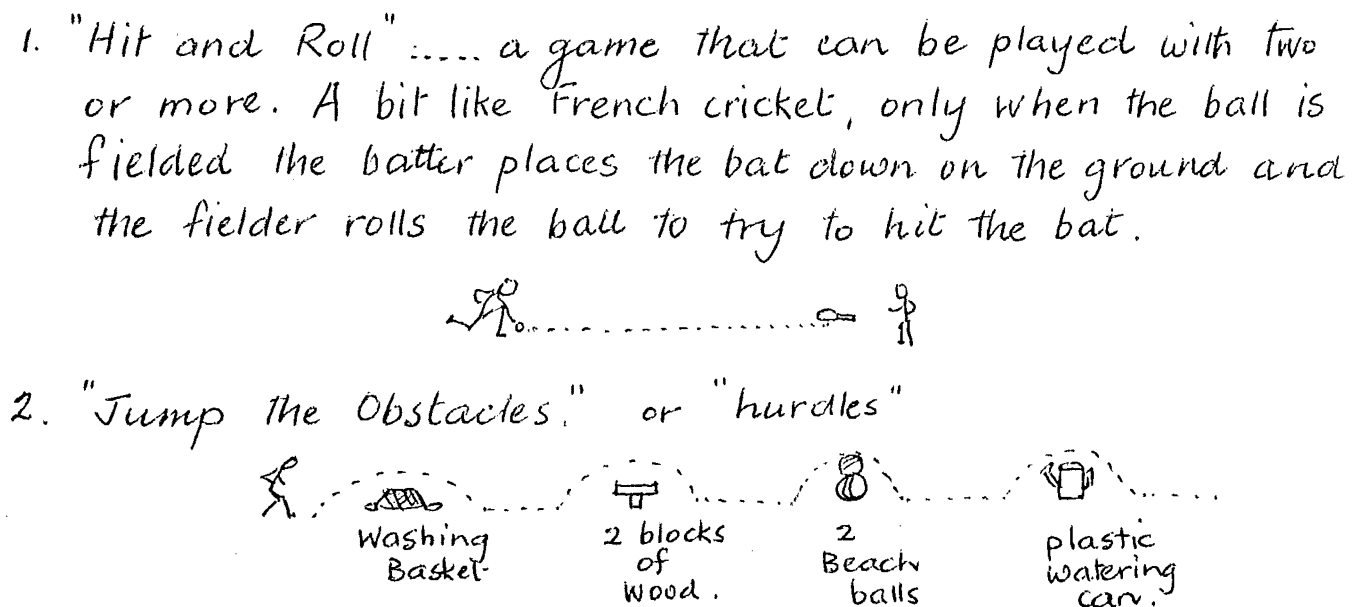 1. "Hit and Roll" :..... a game that can be played with two
or more. A bit like French cricket, only when the ball is
fielded the batter places the bat down on the ground and
the fielder rolls the ball to try to hit the bat.
2. "Jump the Obstacles." or "hurdles"
Washing
Basket
2 blocks
of
wood.
2
Beach
balls
plastic
watering
can.